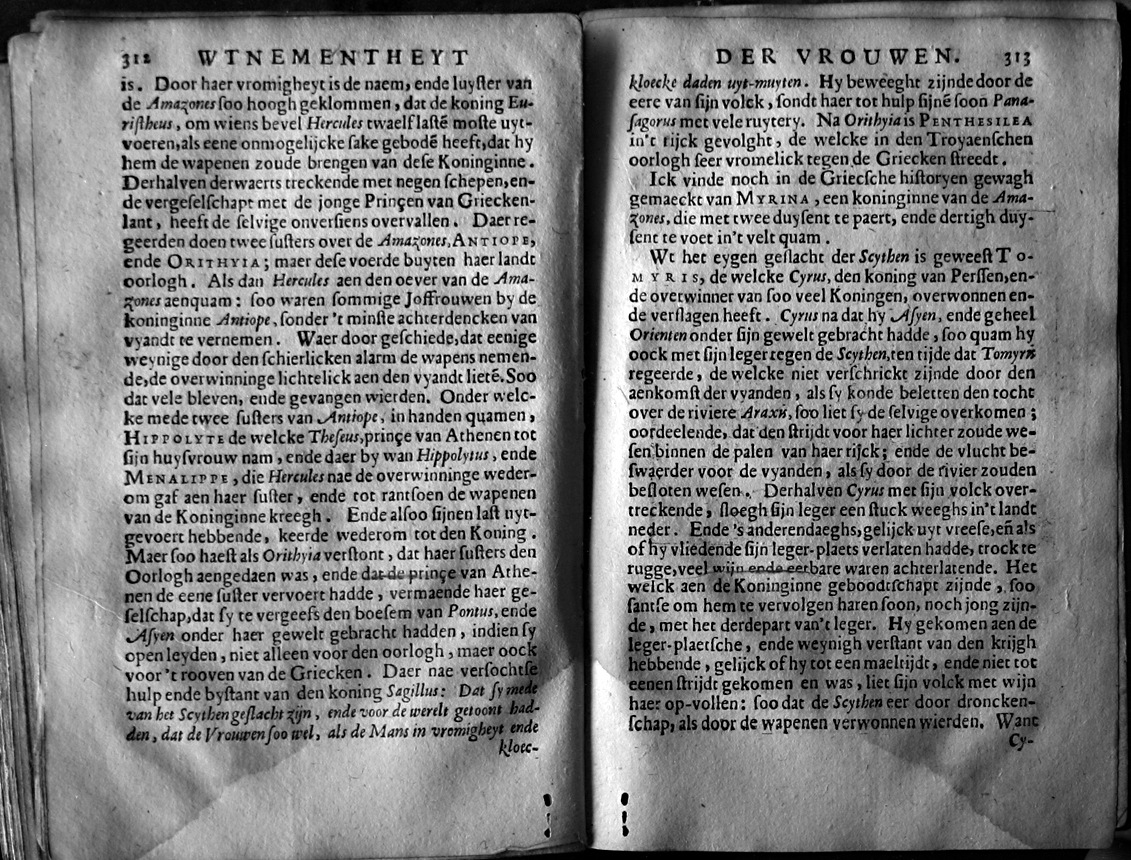 312 WTNEMENTHEYT
is. Door haer vromigheyt is de naem, ende luyſter van
de Amazones ſoo hoogh geklommen, dat de koning Eu-
riſtheus, om wiens bevel Hercules twaelf laſtẽ moſte uyt-
voeren, als eene onmogelijcke ſake gebodẽ heeft, dat hy
hem de wapenen zoude brengen van deſe Koninginne.
Derhalven derwaerts treckende met negen ſchepen, en-
de vergeſelſchapt met de jonge Prinçen van Griecken-
lant, heeft de ſelvige onverſiens overvallen. Daer re-
geerden doen twee ſuſters over de Amazones, ANTIOPE,
ende ORITHYIA; maer deſe voerde buyten haer landt
oorlogh. Als dan Hercules aen den oever van de Ama-
zones aenquam: ſoo waren ſommige Joffrouwen by de
koninginne Antiope, ſonder 't minſte achterdencken van
vyandt te vernemen. Waer door geſchiede, dat eenige
weynige door den ſchierlicken alarm de wapens nemen-
de, de overwinninge lichtelick aen den vyandt lietẽ. Soo
dat vele bleven, ende gevangen wierden. Onder welc-
ke mede twee ſuſters van Antiope, in handen quamen,
HIPPOLYTE de welcke Theſeus, prinçe van Athenen tot
ſijn huyſvrouw nam, ende daer by wan Hippolytus, ende
MENALIPPE, die Hercules nae de overwinninge weder-
om gaf aen haer ſuſter, ende tot rantſoen de wapenen
van de Koninginne kreegh. Ende alſoo ſijnen laſt uyt-
gevoert hebbende, keerde wederom tot den Koning.
Maer ſoo haeſt als Orithyia verſtont, dat haer ſuſters den
Oorlogh aengedaen was, ende dat de prinçe van Athe-
nen de eene ſuſter vervoert hadde, vermaende haer ge-
ſelſchap, dat ſy te vergeefs den boeſem van Pontus, ende
Aſyen onder haer gewelt gebracht hadden, indien ſy
open leyden, niet alleen voor den oorlogh, maer oock
voor 't rooven van de Griecken. Daer nae verſochtſe
hulp ende byſtant van den koning Sagillus: Dat ſy mede
van het Scythen geſlacht zijn, ende voor de werelt getoont had-
den, dat de Vrouwen ſoo wel, als de Mans in vromigheyt ende
kloec-
DER VROUWEN. 313
kloecke daden uyt-muyten. Hy beweeght zijnde door de
eere van ſijn volck, ſondt haer tot hulp ſijnẽ ſoon Pana-
ſagorus met vele ruytery. Na Orithyia is PENTHESILEA
in't rijck gevolght, de welcke in den Troyaenſchen
oorlogh ſeer vromelick tegen de Griecken ſtreedt.
Ick vinde noch in de Griecſche hiſtoryen gewagh
gemaeckt van MYRINA, een koninginne van de Ama-
zones, die met twee duyſent te paert, ende dertigh duy-
ſent te voet in't velt quam.
Wt het eygen geſlacht der Scythen is geweeſt TO-
MYRIS, de welcke Cyrus, den koning van Perſſen, en-
de overwinner van ſoo veel Koningen, overwonnen en-
de verſlagen heeft. Cyrus na dat hy Aſyen, ende geheel
Orienten onder ſijn gewelt gebracht hadde, ſoo quam hy
oock met ſijn leger tegen de Scythen, ten tijde dat Tomyris
regeerde, de welcke niet verſchrickt zijnde door den
aenkomſt der vyanden, als ſy konde beletten den tocht
over de riviere Araxis, ſoo liet ſy de ſelvige overkomen;
oordeelende, dat den ſtrijdt voor haer lichter zoude we-
ſen binnen de palen van haer rijck; ende de vlucht be-
ſwaerder voor de vyanden, als ſy door de rivier zouden
beſloten weſen. Derhalven Cyrus met ſijn volck over-
treckende, ſloegh ſijn leger een ſtuck weeghs in't landt
neder. Ende 's anderendaeghs, gelijck uyt vreeſe, eñ als
of hy vliedende ſijn leger-plaets verlaten hadde, trock te
rugge, veel wijn ende eetbare waren achterlatende. Het
welck aen de Koninginne geboodtſchapt zijnde, ſoo
ſantſe om hem te vervolgen haren ſoon, noch jong zijn-
de, met het derdepart van't leger. Hy gekomen aen de
leger-plaetſche, ende weynigh verſtant van den krijgh
hebbende, gelijck of hy tot een maeltijdt, ende niet tot
eenen ſtrijdt gekomen en was, liet ſijn volck met wijn
haer op-vollen: ſoo dat de Scythen eer door droncken-
ſchap, als door de wapenen verwonnen wierden. Want
Cy-